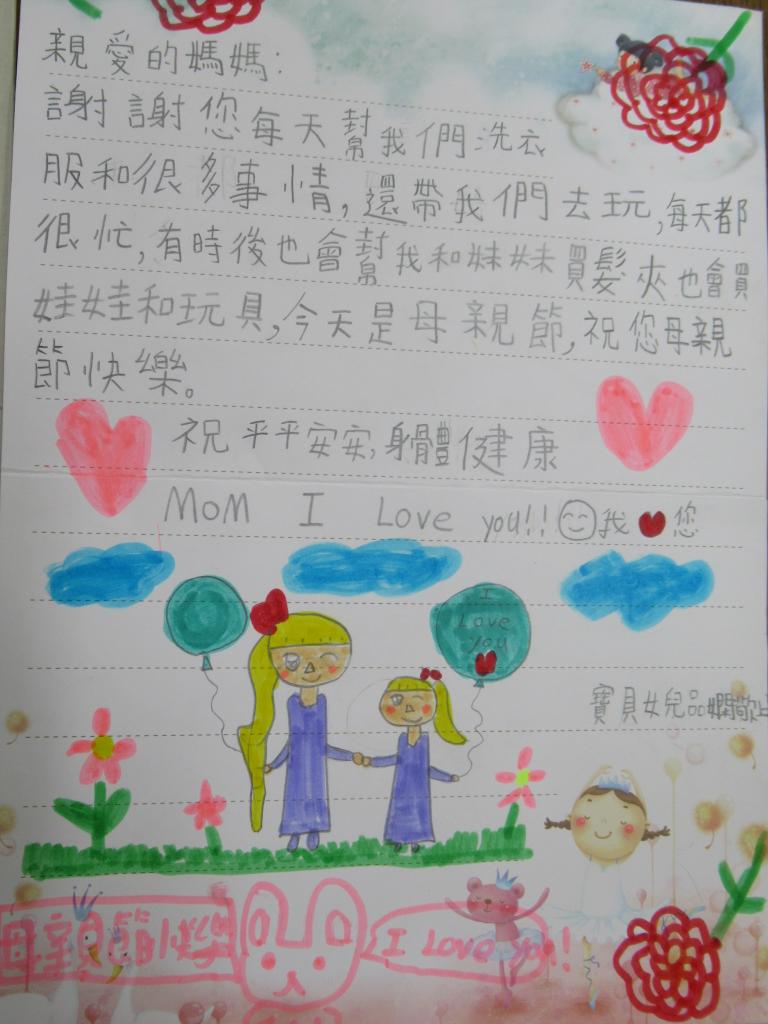 親愛的媽媽:
謝謝您每天幫我們洗衣
服和很多事情,還帶我們去玩,每天都
很忙,有時後也會幫我和妹妹買髮夾也會買
娃娃和玩具,今天是母親節,祝您母親
節快樂。
祝平平安安,身體健康
MoM I Love you!!我您
I Love you
寶貝女兒品嫻敬上
母親節快樂
I Love you!!